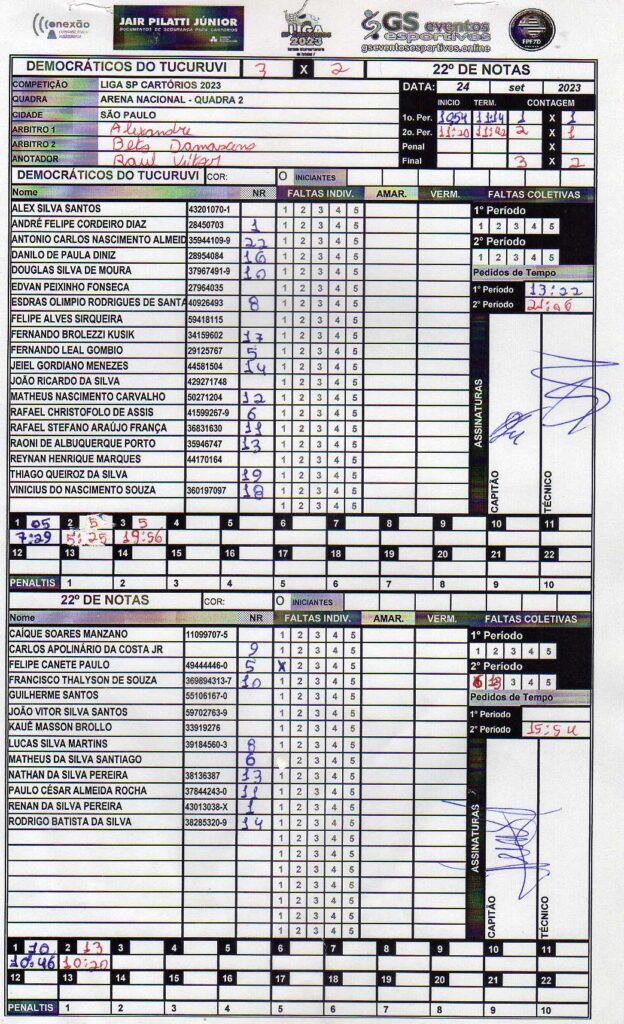 conexão
JAIR PILATTI JÚNIOR
DOCUMENTOS DE SEGURANÇA PARA CARTÓRIOS
LIGA
SP CARTÓRIOS
2023
GS eventos
esportivos
gseventosesportivos.online
FPF7D
DEMOCRÁTICOS DO TUCURUVI 3 X 2 22º DE NOTAS
COMPETIÇÃO LIGA SP CARTÓRIOS 2023 DATA: 24 set 2023
QUADRA ARENA NACIONAL - QUADRA 2 INICIO TERM. CONTAGEM
CIDADE SÃO PAULO 1o. Per. 1054 11:14 1 X 1
ARBITRO 1 Alexandre 2o. Per. 11:20 11:42 2 X 1
ARBITRO 2 Beto Damasceno Penal X
ANOTADOR Raul Final 3 X 2
DEMOCRÁTICOS DO TUCURUVI COR: O INICIANTES
Nome NR FALTAS INDIV. AMAR. VERM. FALTAS COLETIVAS
ALEX SILVA SANTOS 43201070-1 1 2 3 4 5 1º Período
ANDRÉ FELIPE CORDEIRO DIAZ 28450703 1 1 2 3 4 5 1 2 3 4 5
ANTONIO CARLOS NASCIMENTO ALMEID 35944109-9 22 1 2 3 4 5 2º Período
DANILO DE PAULA DINIZ 28954084 16 1 2 3 4 5 1 2 3 4 5
DOUGLAS SILVA DE MOURA 37967491-9 10 1 2 3 4 5 Pedidos de Tempo
EDVAN PEIXINHO FONSECA 27964035 1 2 3 4 5 1º Período 13:22
ESDRAS OLIMPIO RODRIGUES DE SANTA 40926493 8 1 2 3 4 5 2º Período 21:06
FELIPE ALVES SIRQUEIRA 59418115 1 2 3 4 5
FERNANDO BROLEZZI KUSIK 34159602 17 1 2 3 4 5
FERNANDO LEAL GOMBIO 29125767 5 1 2 3 4 5
JEIEL GORDIANO MENEZES 44581504 14 1 2 3 4 5
JOÃO RICARDO DA SILVA 429271748 1 2 3 4 5
MATHEUS NASCIMENTO CARVALHO 50271204 12 1 2 3 4 5
RAFAEL CHRISTOFOLO DE ASSIS 41599267-9 6 1 2 3 4 5
RAFAEL STEFANO ARAÚJO FRANÇA 36831630 11 1 2 3 4 5
RAONI DE ALBUQUERQUE PORTO 35946747 13 1 2 3 4 5
REYNAN HENRIQUE MARQUES 44170164 1 2 3 4 5
THIAGO QUEIROZ DA SILVA 19 1 2 3 4 5
VINICIUS DO NASCIMENTO SOUZA 360197097 18 1 2 3 4 5
1 2 3 4 5
ASSINATURAS
CAPITÃO
TÉCNICO
1 05 2 5 3 5 4 5 6 7 8 9 10 11
7:29 5:25 19:56
12 13 14 15 16 17 18 19 20 21 22
PENALTIS 1 2 3 4 5 6 7 8 9 10
22º DE NOTAS COR: O INICIANTES
Nome NR FALTAS INDIV. AMAR. VERM. FALTAS COLETIVAS
CAÍQUE SOARES MANZANO 11099707-5 1 2 3 4 5 1º Período
CARLOS APOLINÁRIO DA COSTA JR 9 1 2 3 4 5 1 2 3 4 5
FELIPE CANETE PAULO 49444446-0 5 X 2 3 4 5 2º Período
FRANCISCO THALYSON DE SOUZA 369894313-7 10 1 2 3 4 5 3 4 5
GUILHERME SANTOS 55106167-0 1 2 3 4 5 Pedidos de Tempo
JOÃO VITOR SILVA SANTOS 59702763-9 1 2 3 4 5 1º Período
KAUÊ MASSON BROLLO 33919276 1 2 3 4 5 2º Período 15:54
LUCAS SILVA MARTINS 39184560-3 8 1 2 3 4 5
MATHEUS DA SILVA SANTIAGO 6 2 3 4 5
NATHAN DA SILVA PEREIRA 38136387 13 1 2 3 4 5
PAULO CÉSAR ALMEIDA ROCHA 37844243-0 11 1 2 3 4 5
RENAN DA SILVA PEREIRA 43013038-X 1 1 2 3 4 5
RODRIGO BATISTA DA SILVA 38285320-9 14 1 2 3 4 5
1 2 3 4 5
1 2 3 4 5
1 2 3 4 5
1 2 3 4 5
1 2 3 4 5
1 2 3 4 5
1 2 3 4 5
ASSINATURAS
CAPITÃO
TÉCNICO
1 10 2 13 3 4 5 6 7 8 9 10 11
10:46 10:20
12 13 14 15 16 17 18 19 20 21 22
PENALTIS 1 2 3 4 5 6 7 8 9 10